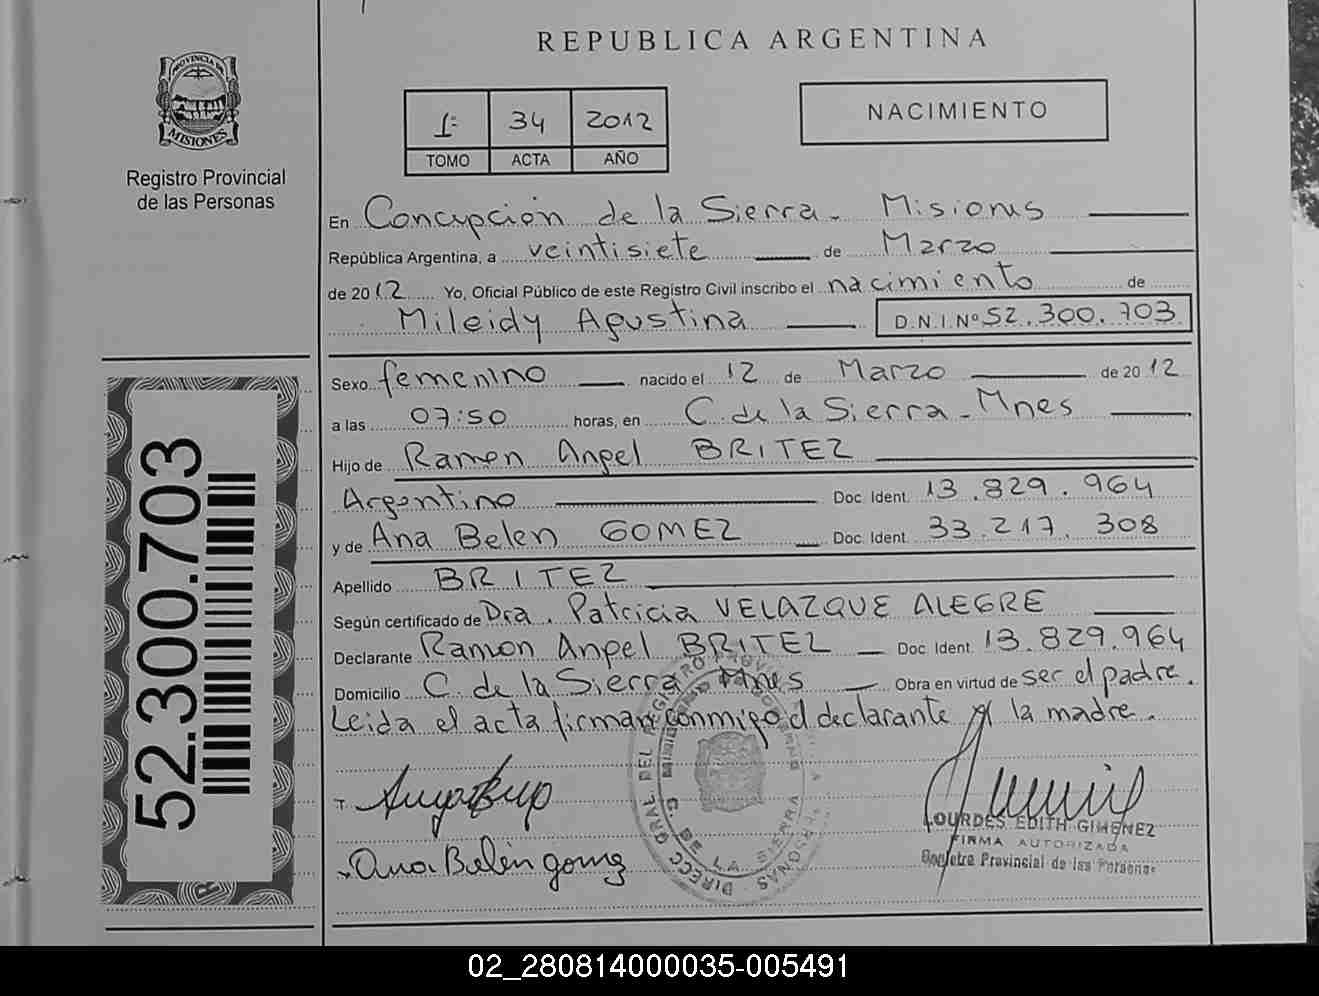 REPUBLICA ARGENTINA
PROVINCIA DE
MISIONES
Registro Provincial
de las Personas
1º 34 2012
TOMO ACTA AÑO
NACIMIENTO
En Concepción de la Sierra - Misiones
República Argentina, a veintisiete de Marzo
de 2012 Yo, Oficial Público de este Registro Civil inscribo el nacimiento de
Mileidy Agustina D.N.I.Nº 52.300.703
Sexo femenino nacido el 12 de Marzo de 2012
a las 07:50 horas, en C. de la Sierra - Mnes
Hijo de Ramon Angel BRITEZ
Argentino Doc. Ident. 13.829.964
y de Ana Belen GOMEZ Doc. Ident. 33.217.308
Apellido BRITEZ
Según certificado de Dra. Patricia VELAZQUE ALEGRE
Declarante Ramon Angel BRITEZ Doc. Ident. 13.829.964
Domicilio C. de la Sierra Mnes Obra en virtud de ser el padre.
Leida el acta firman conmigo el declarante y la madre.
52.300.703
DIRECC. GRAL. DEL REGISTRO PROVINCIAL PERSONAS
MINISTERIO DE GOBIERNO
C. DE LA SIERRA
Ana Belén gomez
LOURDES EDITH GIMENEZ
FIRMA AUTORIZADA
Registro Provincial de las Personas
02_280814000035-005491